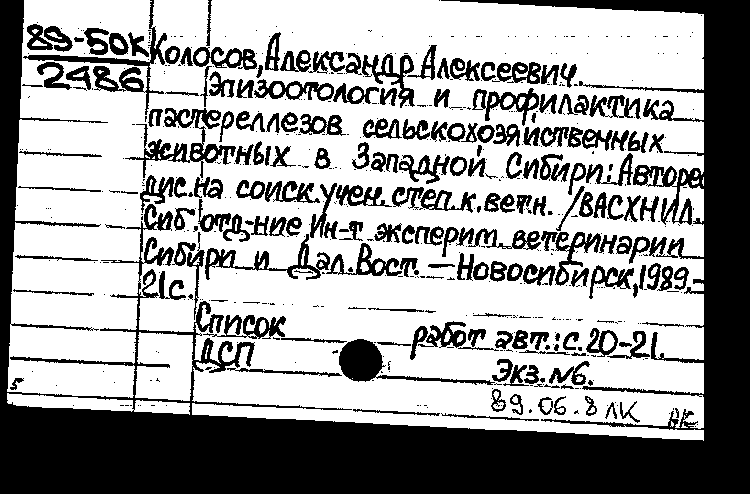 89-50к Колосов, Александр Алексеевич.
2486
Эпизоотология и профилактика
пастереллезов сельскохозяйственных
животных в Западной Сибири: Авторе
дис. на соиск. учен. степ. к. вет. н. /ВАСХНИЛ.
Сиб. отд-ние, Ин-т эксперим. ветеринарии
Сибири и Дал. Вост. — Новосибирск, 1989.-
21 с.
Список работ авт.: с. 20-21.
ДСП Экз. №6.
5 89.06.8 ЛК